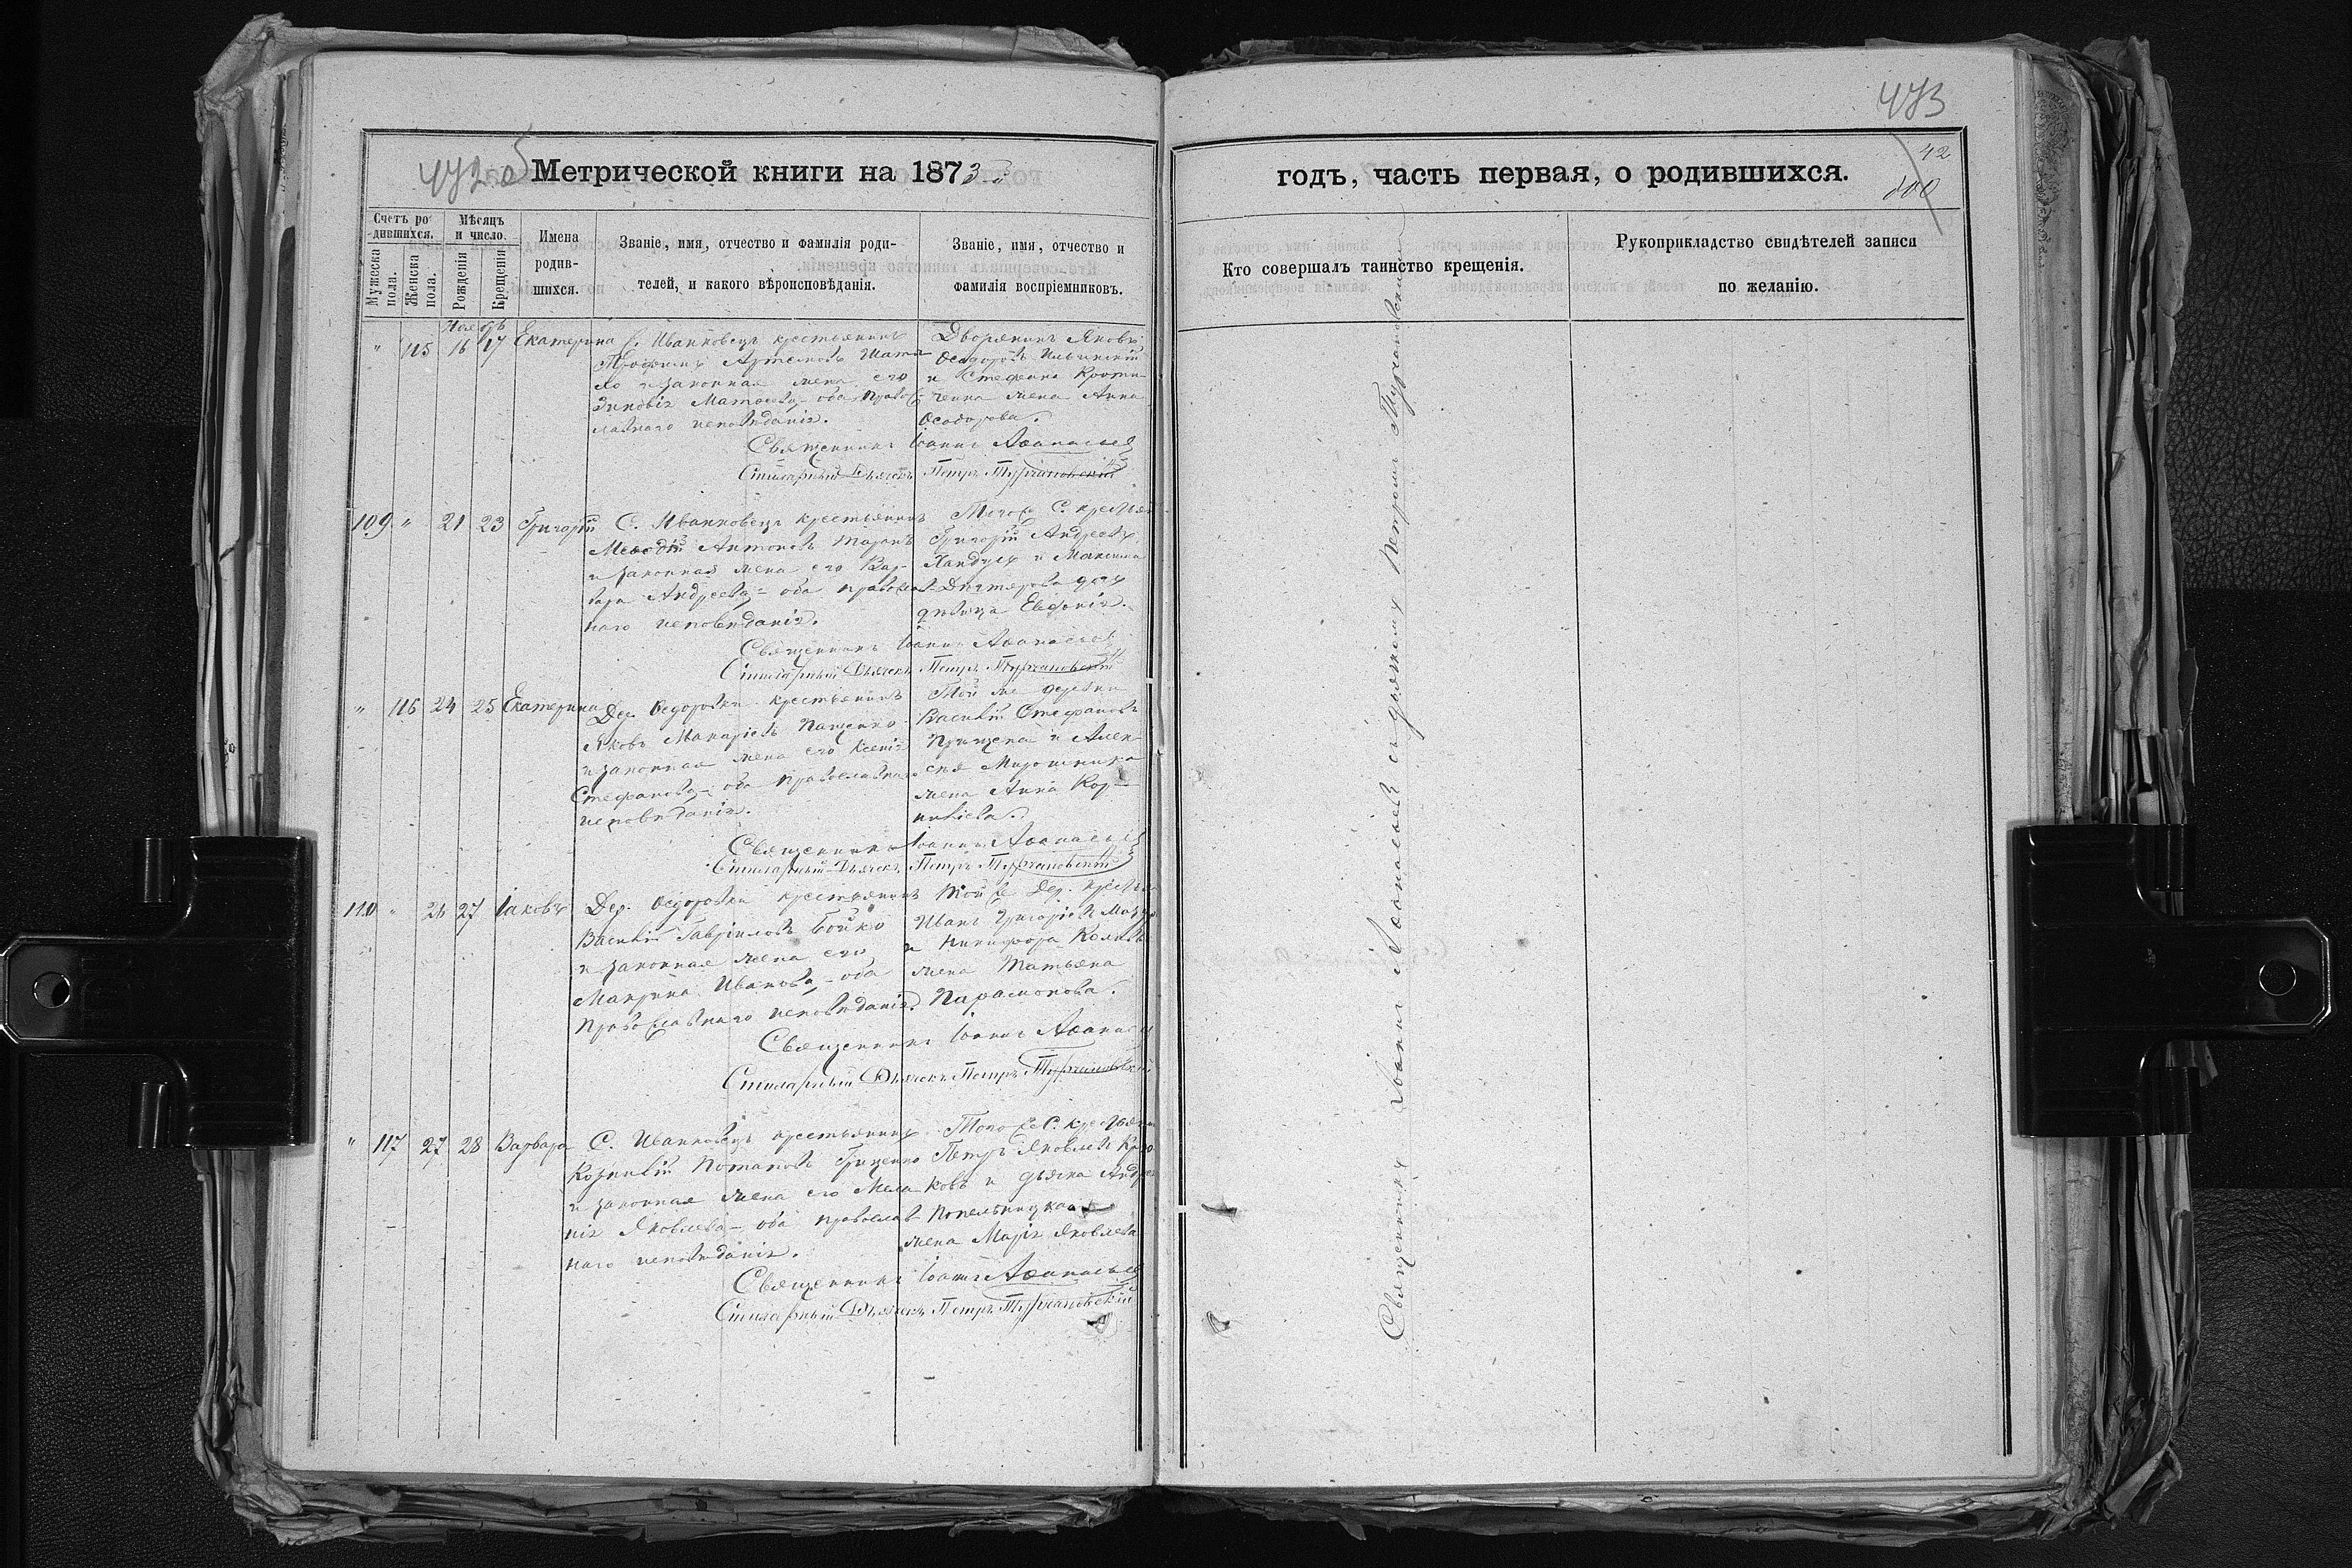 472 об
Метрической книги на 1873
Счетъ ро-
дившихся.
Мѣсяцъ
и число.
Мужеска
пола.
Женска
пола.
Рожденія
Крещенія
Имена
родив-
шихся.
Званіе, имя, отчество и фамилія роди-
телей, и какого вѣроисповѣданія.
Званіе, имя, отчество и
фамилія воспріемниковъ.
Ноябрь
" 115 16 17 Екатерина
С. Иванковецъ крестьянинъ
Трофимъ Артемовъ
и законная жена его
Зиновія Матѳеева, оба Правос-
лавнаго исповѣданія.
Дворянинъ Яковъ
Ѳеодоровъ Ильинскій
и Стефана
жена Анна
Ѳеодорова.
Священникъ Іоаннъ Аѳанасьев
Стихарный Дьячекъ Петръ Турчановскій
109 " 21 23 Григорій
С. Иванковецъ крестьянинъ
Меѳодій Антоновъ Таранъ
и законная жена его Вар-
вара Андреева, оба православ-
наго исповѣданія.
Того же С. крестьян
Григорій Андреевъ
и Максима
дочь
дѣвица Евфимія.
Священникъ Іоаннъ Аѳанасьев
Стихарный Дьячекъ Петръ Турчановскій
" 116 24 25 Екатерина
Дер. Ѳедоровки крестьянинъ
Яковъ Макаріевъ Пащенко
и законная жена его Ксенія
Стефанова, оба православнаго
исповѣданія.
Той же деревни
Василій Стефановъ
Прищепа и Алек-
сѣя Мирошника
жена Анна Кор-
ниліева.
Священникъ Іоаннъ Аѳанасьев
Стихарный Дьячекъ Петръ Турчановскій
110 " 26 27 Іаковъ
Дер. Ѳедоровки крестьянинъ
Василій Гавріиловъ Бойко
и законная жена его
Макрина Иванова, оба
Православнаго исповѣданія.
Той же Дер. крестья
Иванъ Григоріевъ
и Никифора
жена Татьяна
Парамонова.
Священникъ Іоаннъ Аѳанасьев
Стихарный Дьячекъ Петръ Турчановскій
" 117 27 28 Варвара
С. Иванковецъ крестьянинъ
Корнилій Потаповъ Гриценко
и законная жена его Мела-
нія Яковлева, оба православ-
наго исповѣданія.
Того же С. крестьян
Петръ Яковлевъ
и дьячка Андрея
Попельницкаго
жена Марія Яковлева
Священникъ Іоаннъ Аѳанасьев
Стихарный Дьячекъ Петръ Турчановскій
473
42
годъ, часть первая, о родившихся.
Кто совершалъ таинство крещенія.
Рукоприкладство свидѣтелей записи
по желанію.
Священникъ Іоаннъ Аѳанасьев съ дьячкомъ Петромъ Турчановскимъ